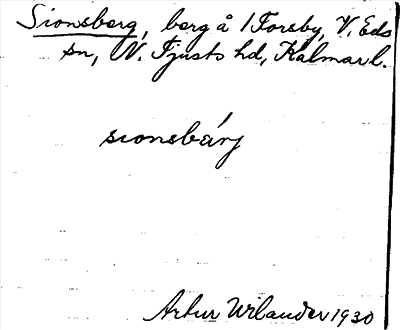 Sionsberg, berg å 1 Forsby, V. Eds
sn, N. Tjusts hd, Kalmar l.
sionsbárj
Artur Wilander 1930